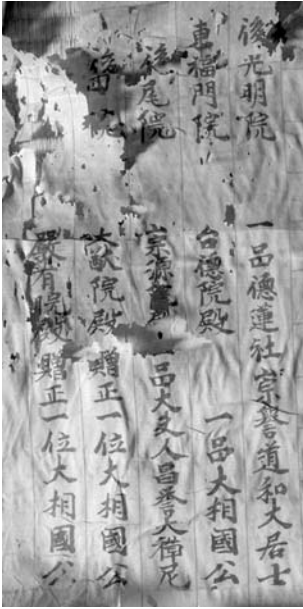 後光明院 一品德蓮社崇譽道和大居士
東福門院 台德院殿 一品大相國公
後尾院 崇源 一品大夫人昌譽大禅尼
院 大猷院殿 贈正一位大相國公
嚴有院殿 贈正一位大相國公